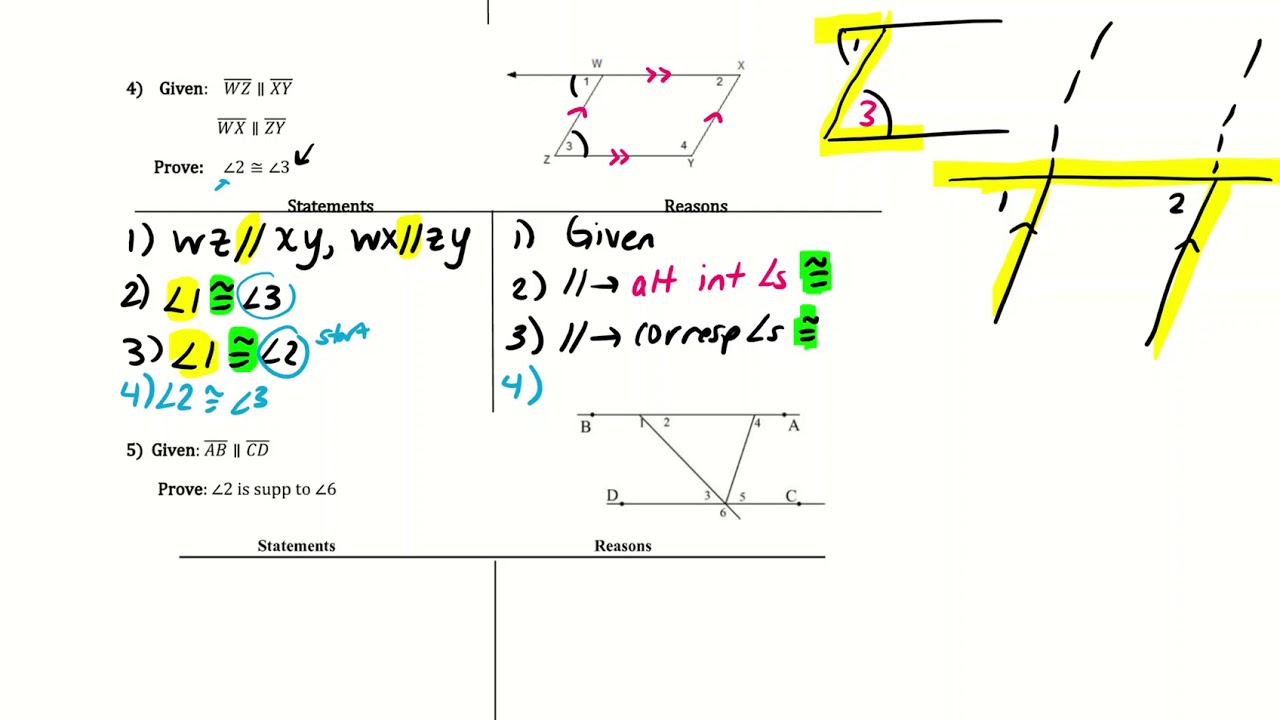 4) Given: WZ ∥ XY
WX ∥ ZY
Prove: ∠2 ≅ ∠3
W X
1 2
3 4
Z Y
1
3
1 2
Statements Reasons
1) WZ // XY, WX // ZY 1) Given
2) ∠1 ≅ ∠3 2) // → alt int ∠s ≅
3) ∠1 ≅ ∠2 start 3) // → corresp ∠s ≅
4) ∠2 ≅ ∠3 4)
5) Given: AB ∥ CD
Prove: ∠2 is supp to ∠6
B 1 2 4 A
D 3 5 C
6
Statements Reasons